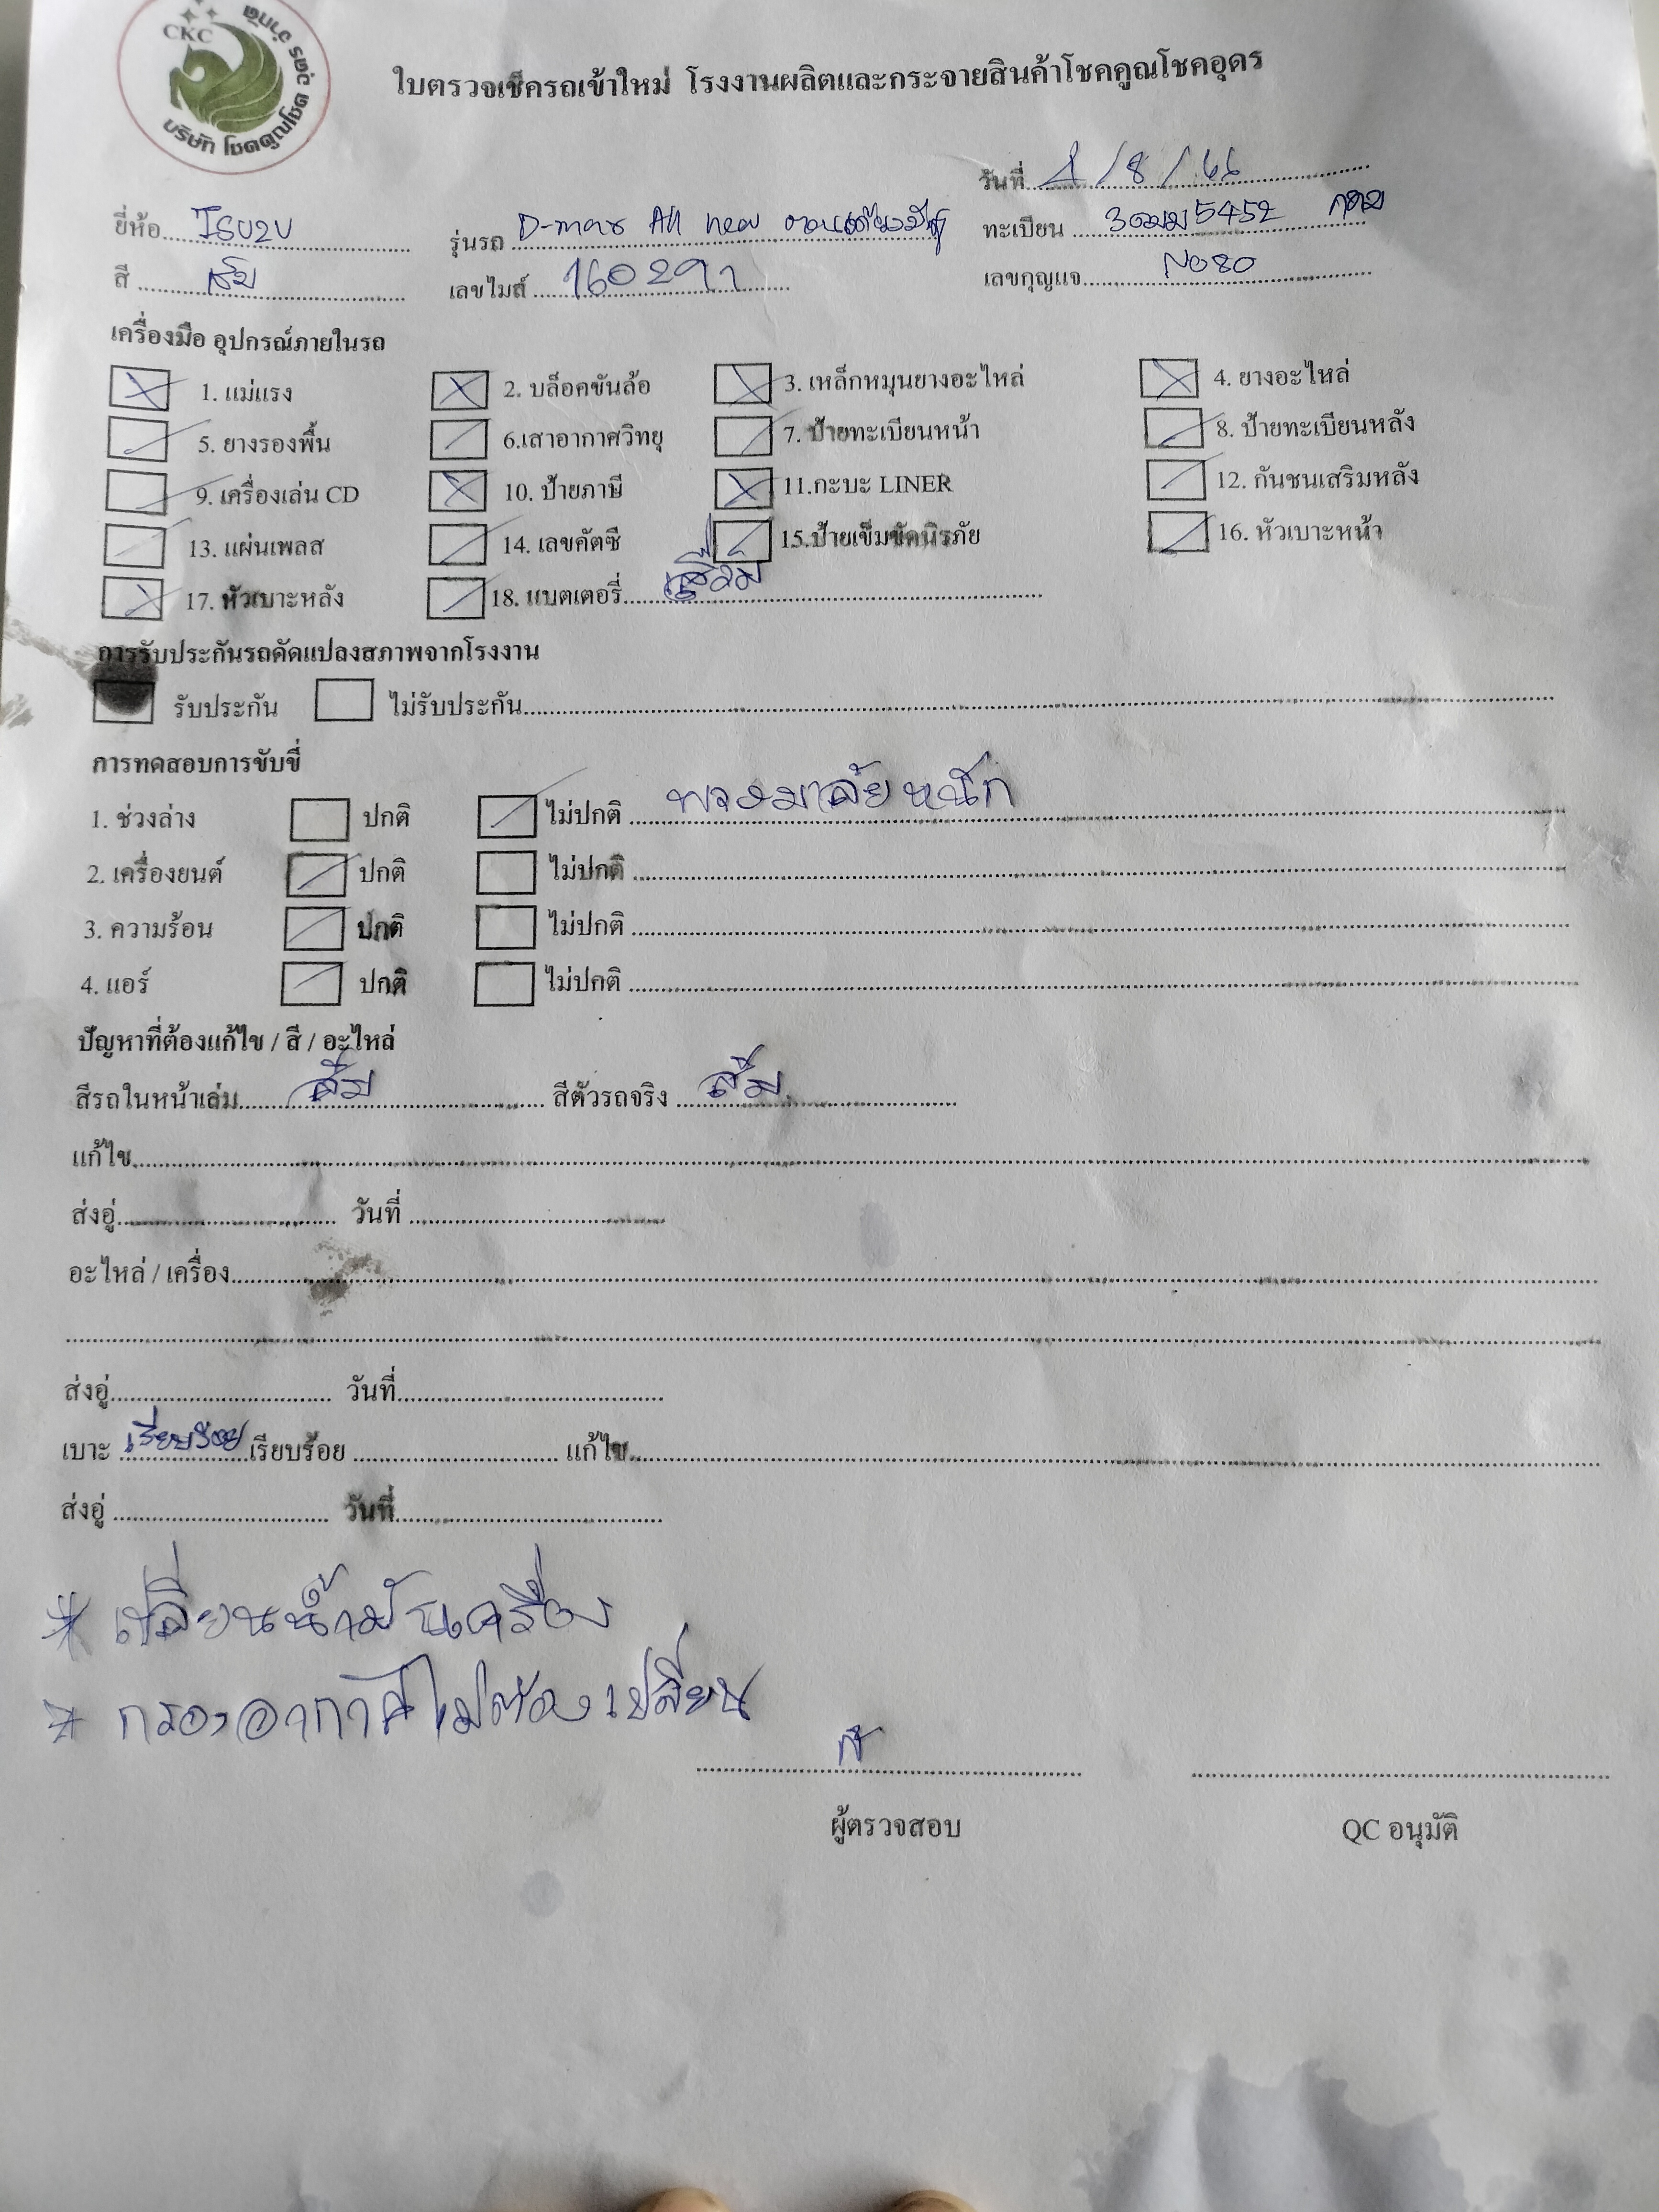 CKC
บริษัท โชคคูณโชค อุดร จำกัด
ใบตรวจเช็ครถเข้าใหม่ โรงงานผลิตและกระจายสินค้าโชคคูณโชคอุดร
วันที่ 1/8/66
ยี่ห้อ ISUZU รุ่นรถ D-max All new ทะเบียน 5452 กทม
สี ส้ม เลขไมล์ เลขกุญแจ N080
เครื่องมือ อุปกรณ์ภายในรถ
1. แม่แรง 2. บล็อคขันล้อ 3. เหล็กหมุนยางอะไหล่ 4. ยางอะไหล่
5. ยางรองพื้น 6.เสาอากาศวิทยุ 7. ป้ายทะเบียนหน้า 8. ป้ายทะเบียนหลัง
9. เครื่องเล่น CD 10. ป้ายภาษี 11.กะบะ LINER 12. กันชนเสริมหลัง
13. แผ่นเพลส 14. เลขคัตซี 15.ป้ายเข็มขัดนิรภัย 16. หัวเบาะหน้า
17. หัวเบาะหลัง 18. แบตเตอรี่ เสื่อม
การรับประกันรถดัดแปลงสภาพจากโรงงาน
รับประกัน ไม่รับประกัน
การทดสอบการขับขี่
1. ช่วงล่าง ปกติ ไม่ปกติ พวงมาลัยหนัก
2. เครื่องยนต์ ปกติ ไม่ปกติ
3. ความร้อน ปกติ ไม่ปกติ
4. แอร์ ปกติ ไม่ปกติ
ปัญหาที่ต้องแก้ไข / สี / อะไหล่
สีรถในหน้าเล่ม ส้ม สีตัวรถจริง ส้ม
แก้ไข
ส่งอู่ วันที่
อะไหล่ / เครื่อง
ส่งอู่ วันที่
เบาะ เรียบร้อย เรียบร้อย แก้ไข
ส่งอู่ วันที่
* เปลี่ยนน้ำมันเครื่อง
* กรองอากาศไม่ต้องเปลี่ยน
ผู้ตรวจสอบ QC อนุมัติ